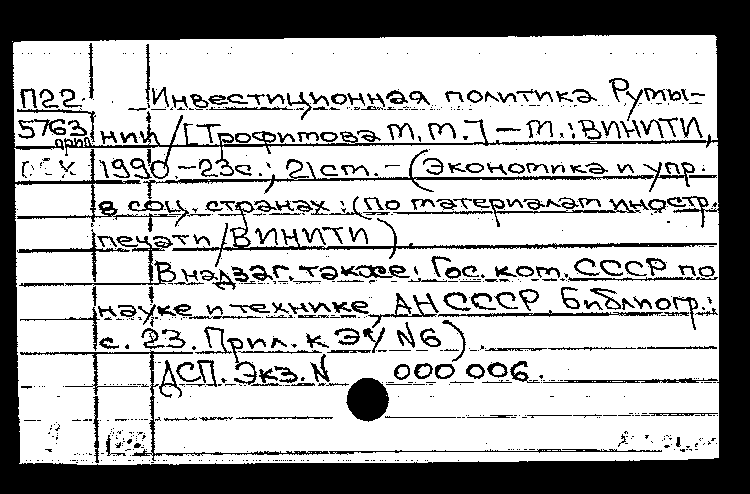 П22 Инвестиционная политика Румы-
5763 прил нии / [Трофимова М.М.] - М.: ВИНИТИ,
ОСХ 1990. - 23с.; 21 ст. - (Экономика и упр.
в соц. странах: (По материалам иностр.
печати / ВИНИТИ).
В надзаг. также: Гос. ком. СССР по
науке и технике, АН СССР. Библиогр.:
с. 23. Прил. к ЭУ N6).
ДСП. Экз. N 000 006.
9